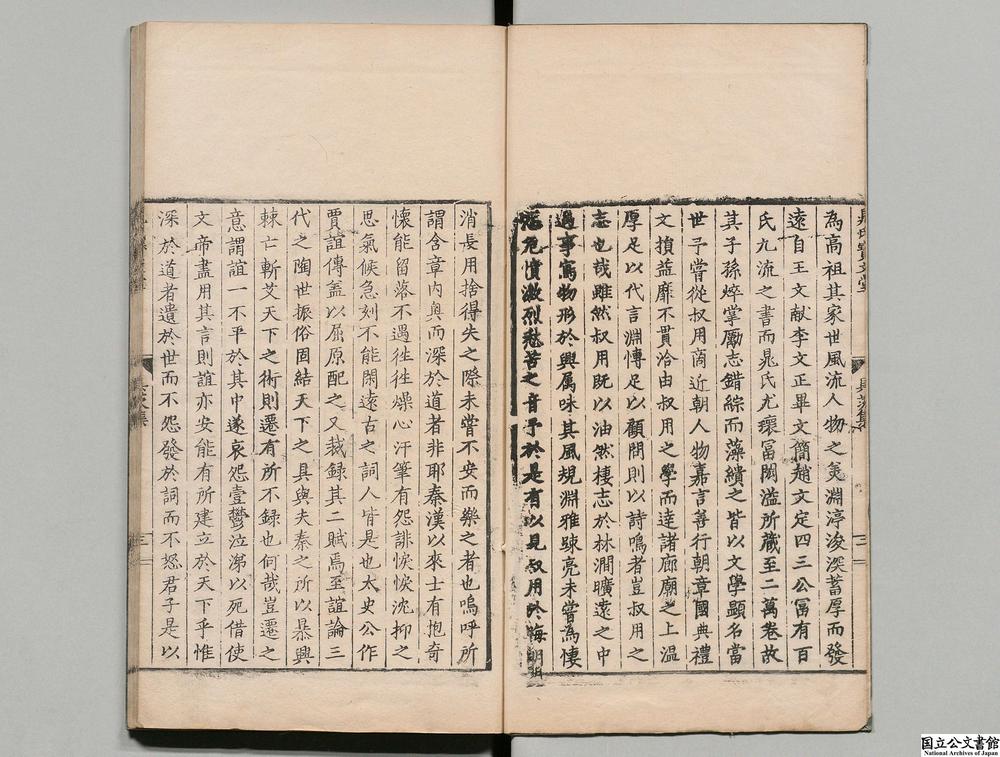 為高祖其家世風流人物之羙淵渟浚深蓄厚而發
遠自王文献李文正畢文簡趙文定四三公冨有百
氏九流之書而晁氏尤瓌冨閎溢所藏至二萬卷故
其子孫焠掌勵志錯綜而藻繢之皆以文學顯名當
世子嘗從叔用商近朝人物嘉言善行朝章國典禮
文損益靡不貫洽由叔用之學而逹諸廊廟之上温
厚足以代言淵慱足以顧問則以詩鳴者豈叔用之
志也哉雖然叔用既以油然棲志於林澗曠遠之中
遇事寫物形於興属咏其風規淵雅踈亮未嘗為悽
危憤激烈愁苦之音予於是有以見叔用於晦明
消長用捨得失之際未嘗不安而樂之者也嗚呼所
謂含章内奥而深於道者非耶秦漢以來士有抱奇
懷能留落不遇徃徃燥心汗筆有怨誹悷悷沈抑之
思氣候急刻不能閑遠古之詞人皆是也太史公作
賈誼傳盖以屈原配之又裁録其二賦焉至誼論三
代之陶世振俗固結天下之具與夫秦之所以暴興
棘亡斬艾天下之術則遷有所不録也何哉豈遷之
意謂誼一不平於其中遂哀怨壹鬱泣涕以死借使
文帝盡用其言則誼亦安能有所建立於天下乎惟
深於道者遺於世而不怨發於詞而不怒君子是以
晁氏寳文堂
具茨集
三
具茨集
三
国立公文書館
National Archives of Japan